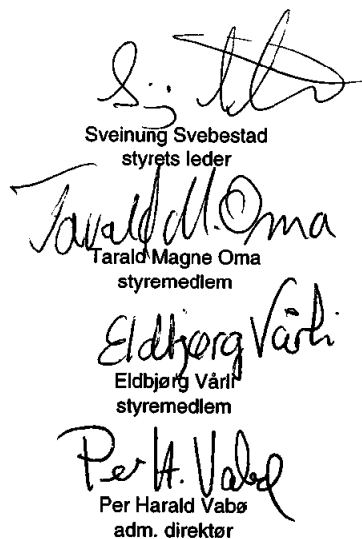 Sveinung Svebestad
styrets leder
Tarald M. Oma
Tarald Magne Oma
styremedlem
Eldbjørg Vårli
Eldbjørg Vårli
styremedlem
Per H. Vabø
Per Harald Vabø
adm. direktør